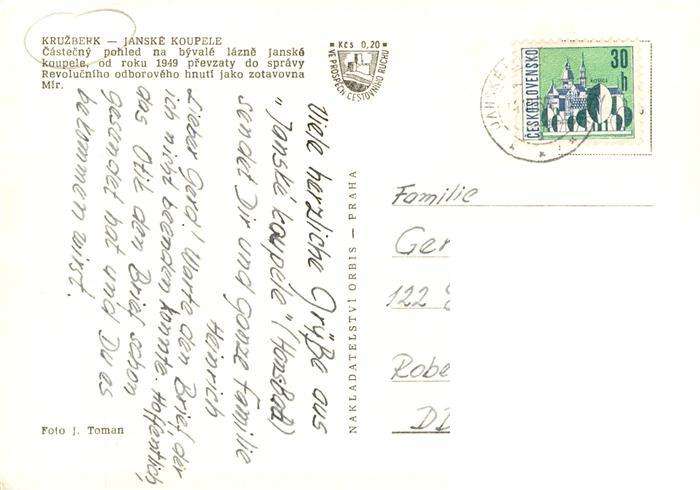 KRUŽBERK — JANSKÉ KOUPELE
Částečný pohled na bývalé lázně Janské
koupele, od roku 1949 převzaty do správy
Revolučního odborového hnutí jako zotavovna
Mír.
Kčs 0,20
VE PROSPĚCH CESTOVNÍHO RUCHU
ČESKOSLOVENSKO
30
h
Viele herzliche Grüße aus
"Janské koupele"
sendet Dir und ganze Familie
Heinrich
Lieber Gerd! Warte den Brief, der
ich nicht beenden konnte. Hoffentlich,
das Otik den Brief schon
gesendet hat und Du es
bekommen wirst.
NAKLADATELSTVÍ ORBIS — PRAHA
Familie
Ger
122
Robe
Foto J. Toman